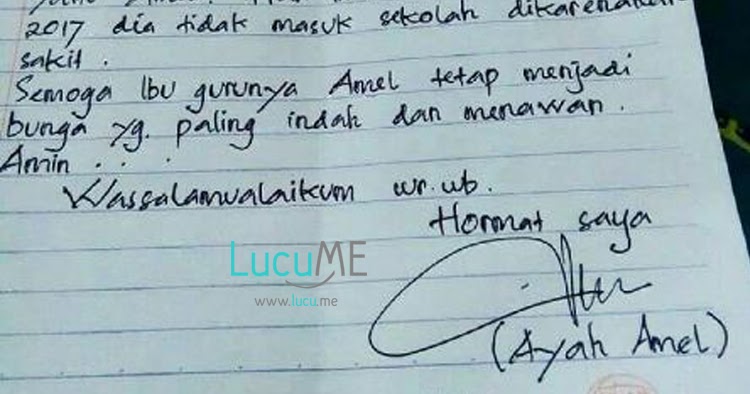 2017 dia tidak masuk sekolah dikarenakan
sakit.
Semoga Ibu gurunya Amel tetap menjadi
bunga yg. paling indah dan menawan.
Amin . . .
Wassalamualaikum wr.wb.
Hormat saya
LucuME
www.lucu.me
(Ayah Amel)